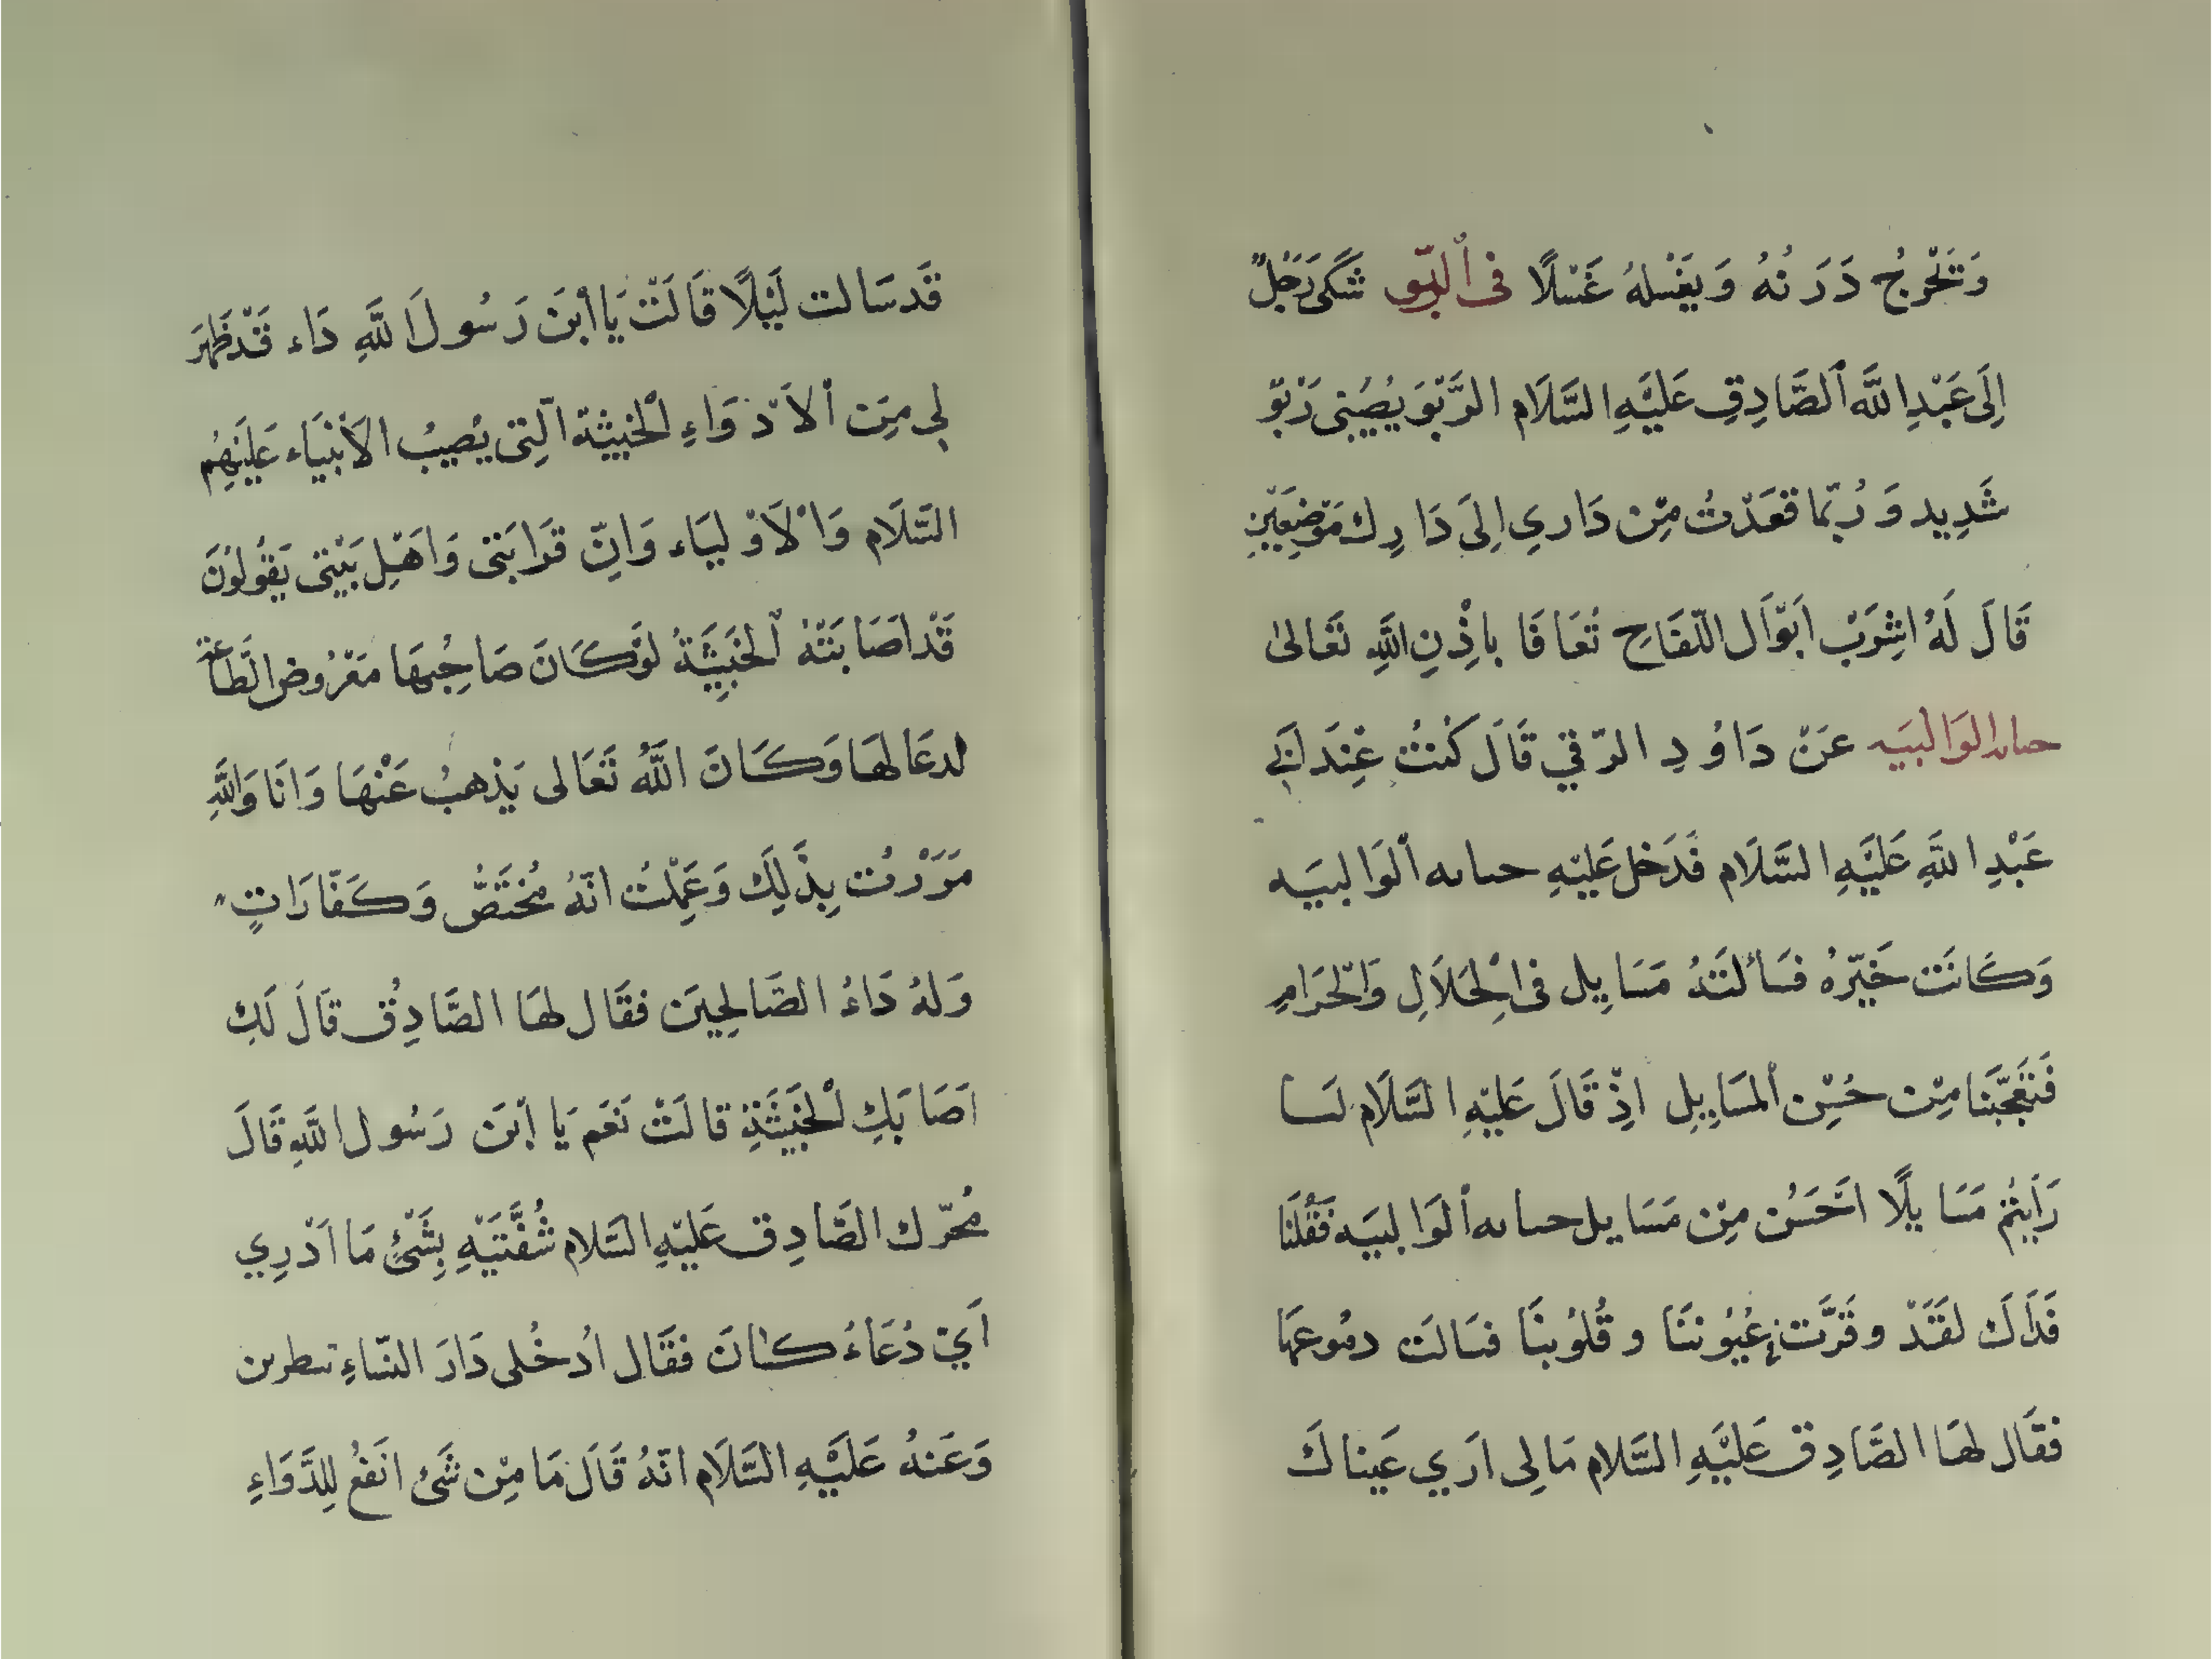 وَتَخْرجُ دَرَنُهُ وَيَغْسلهُ غَسْلًا فى ٱلرّبو شَكَى رَجُلٌ
اِلَى عَبْدِ اللَّه ٱلصَّادِقِ عَلَيْهِ السَّلَام الرَّبْوَ يُصُيْبنى رَبْوٌ
شَدِيد وَرُبّما قعَدْتُ مِنْ دَارِي اِلَى دَارِك مَوْضِعَيْنِ
قَالَ لَهُ اشِرَبْ اَبْوَال اللّقَاحِ تُعَافَا باِذْنِ اللَّهِ تَعَالىٰ
حىاىه الوَالبيَه عَنْ دَاوُدِ الرّقي قَالَ كُنتُ عِنْدَ اَبَى
عَبْدِ اللَّهِ عَلَيْهِ السَّلَام فَدَخل عَليْهِ حىاىه ألوَالبيَه
وَكَانَت خَيّرهُ فسَألتَهُ مَسَايِل فى اْلِحَلَالِ وَاْلحَرَامِ
فَتَعَجّبَنا مِنْ حُسْنِ ألمسَايِلِ اذِْ قَالَ عَليْهِ السَّلَام لنَا
رَاَيتُمْ مَسَايلًا احَْسَن مِنْ مَسَايل حىاىه ألوَالبيَه فَقُلنَا
فَدَاكَ لقَدَْ وقَرَّت عُيُوننَا وقُلوُبنَا فسَالَت دمُوعهَا
فقَال لهَا الصَّادِق عَليْهِ السَّلام مَا لى اَرَي عَيناكَ
قَد سَالت لَيْلًا قَالَتْ يَا اْبنَ رَسُولَ اللَّهِ دَاء قَدْ ظَهرَ
لي مِنَ اْلاَدْوَاءِ اْلخبيثة اّلتِى يُصيبُ الاَنْبيَاء عَليَهِمُ
السَّلَام وَاْلَاوْليَاء وَانِّ قَرَابَتى وَاهَْلِ بَيْتى يَقُولوُنَ
قَدْ اَصَابَتْهُ اْلخَبيِثَةُ لوَْ كَانَ صَاحِبُهَا مَفْرُوض الطَّاعة
لدعَا لهَا وَكَانَ اللَّهُ تَعَالى يَذْهبُ عَنْهَا وَانَا وَاللَّهِ
مَرَرْتُ بِذَلِك وَعَمِلْتُ انّهُ مُخْتَصٌّ وَكَفّارَاتٍ
وَلهُ دَاءُ الصَّالحِينَ فقَال لهَا الصَّادِقُ قَالَ لَكِ
اَصَابَكِ اْلخَبيْثَةِ قالَتْ نَعَم يَا اْبنَ رَسُول اللَّهِ قَالَ
مُحرّك الصَّادِق عَليْهِ السَّلام شُفَّتيَْهِ بِشَىْءٍ مَا ادَْرِي
اَيّ دُعَاءُ كانَ فقَال ادُخُلى دَارَ النّسَاءِ
وَعَنهُ عَلَيْهِ السَّلَام انّهُ قَالَ مَا مِنْ شَىْ انَفعُ لِلدَّوَاءِ